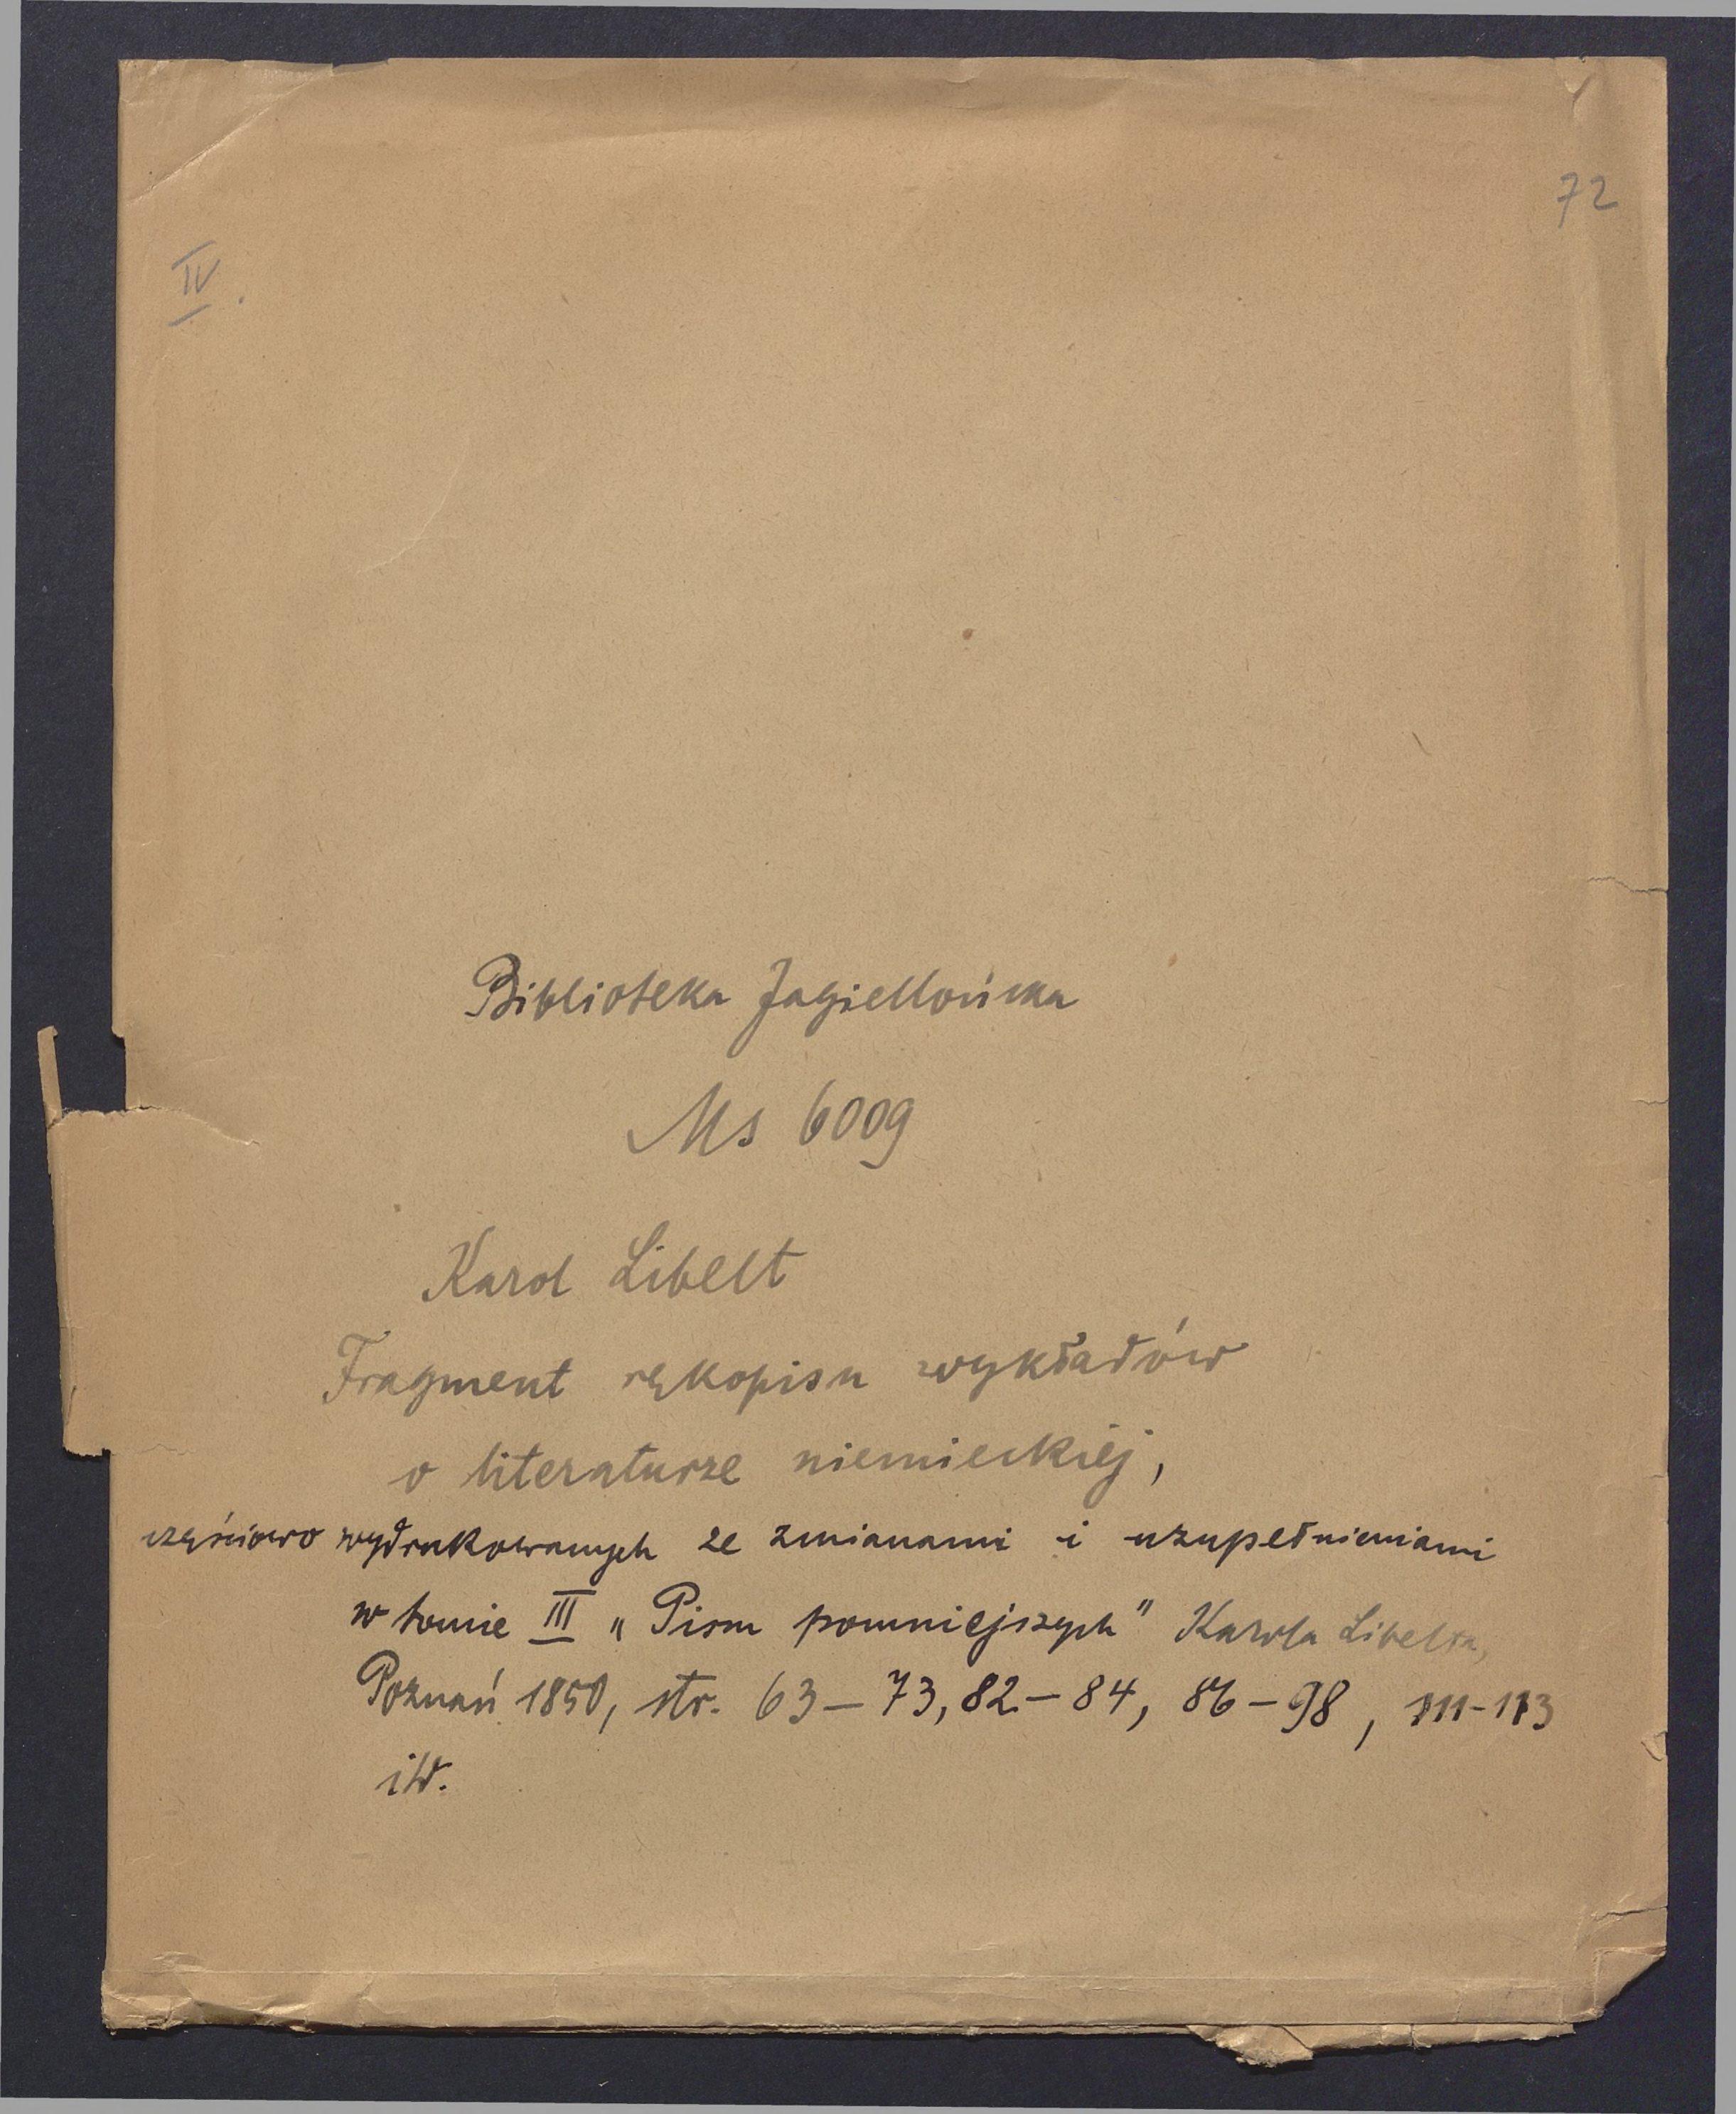 72
IV.
Biblioteka Jagiellońska
Ms 6009
Karol Libelt
Fragment rękopisu wykładów
o literaturze niemieckiej,
częściowo wydrukowanych ze zmianami i uzupełnieniami
w tomie III „Pism pomniejszych" Karola Libelta,
Poznań 1850, str. 63–73, 82–84, 86–98, 111-113
itd.